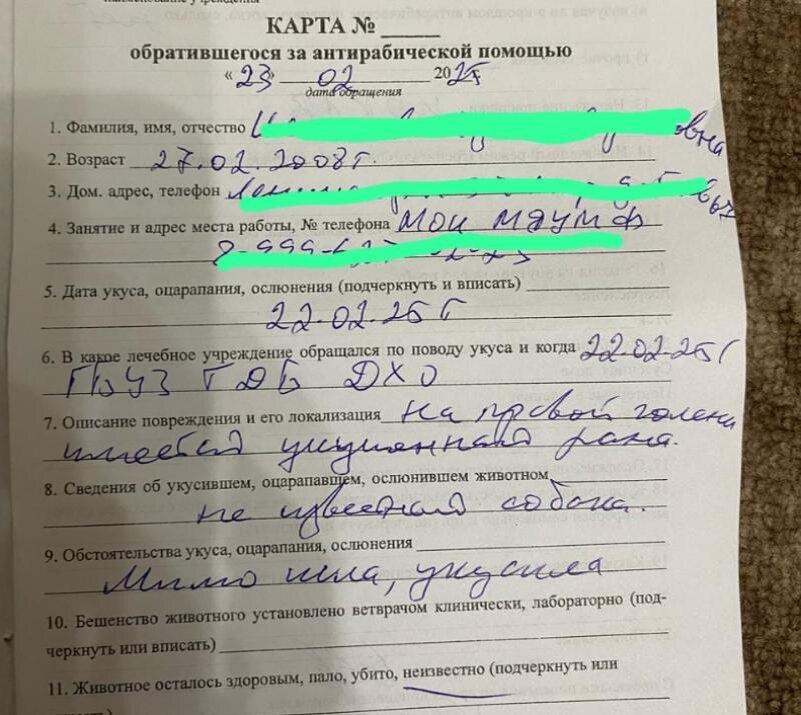 КАРТА № _____
обратившегося за антирабической помощью
«23» 02 2025
дата обращения
1. Фамилия, имя, отчество
2. Возраст 27.02.2008г.
3. Дом. адрес, телефон
4. Занятие и адрес места работы, № телефона
5. Дата укуса, оцарапания, ослюнения (подчеркнуть и вписать)
22.02.25 г
6. В какое лечебное учреждение обращался по поводу укуса и когда 22.02.25 г
ГБУЗ ГДБ ДХО
7. Описание повреждения и его локализация на правой голени
имеется укушенная рана.
8. Сведения об укусившем, оцарапавшем, ослюнившем животном
не известная собака.
9. Обстоятельства укуса, оцарапания, ослюнения
Мимо шла, укусила
10. Бешенство животного установлено ветврачом клинически, лабораторно (под-
черкнуть или вписать)
11. Животное осталось здоровым, пало, убито, неизвестно (подчеркнуть или